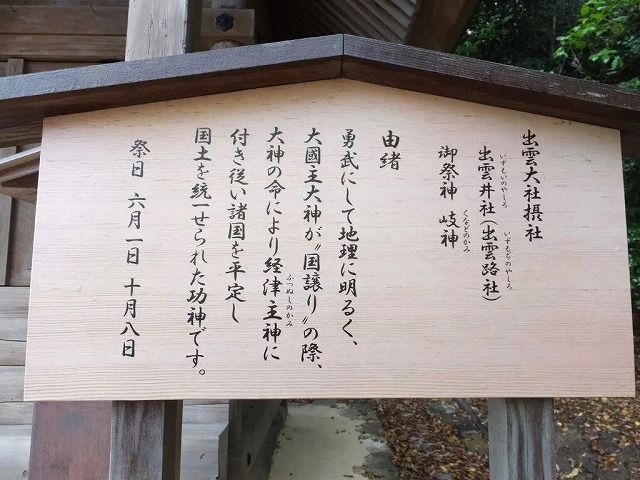 出雲大社摂社
出雲井社(出雲路社)
いずもいのやしろ
いずもぢのやしろ
御祭神 岐神
くなどのかみ
由緒
勇武にして地理に明るく、
大國主大神が〝国譲り〟の際、
大神の命により経津主神に
ふつぬしのかみ
付き従い諸国を平定し
国土を統一せられた功神です。
祭日 六月一日 十月八日